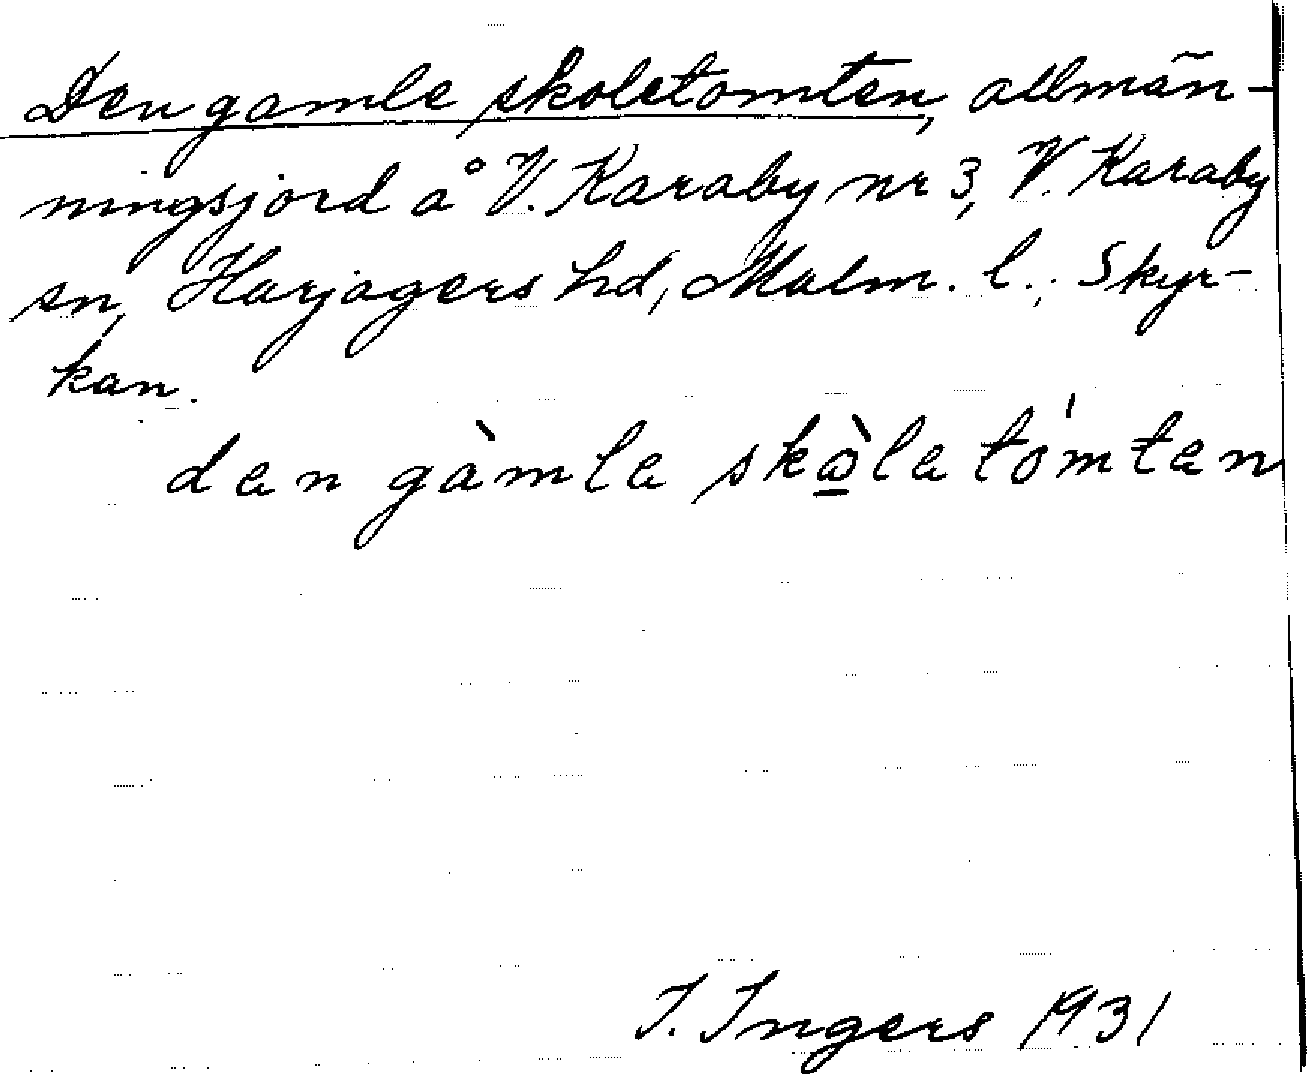 Den gamle skoletomten, allmän-
ningsjord å V. Karaby nr 3, V. Karaby
sn, Harjagers hd, Malm. l.; Skyr-
kan.
den gàmle skò̲letómten
I. Ingers 1931